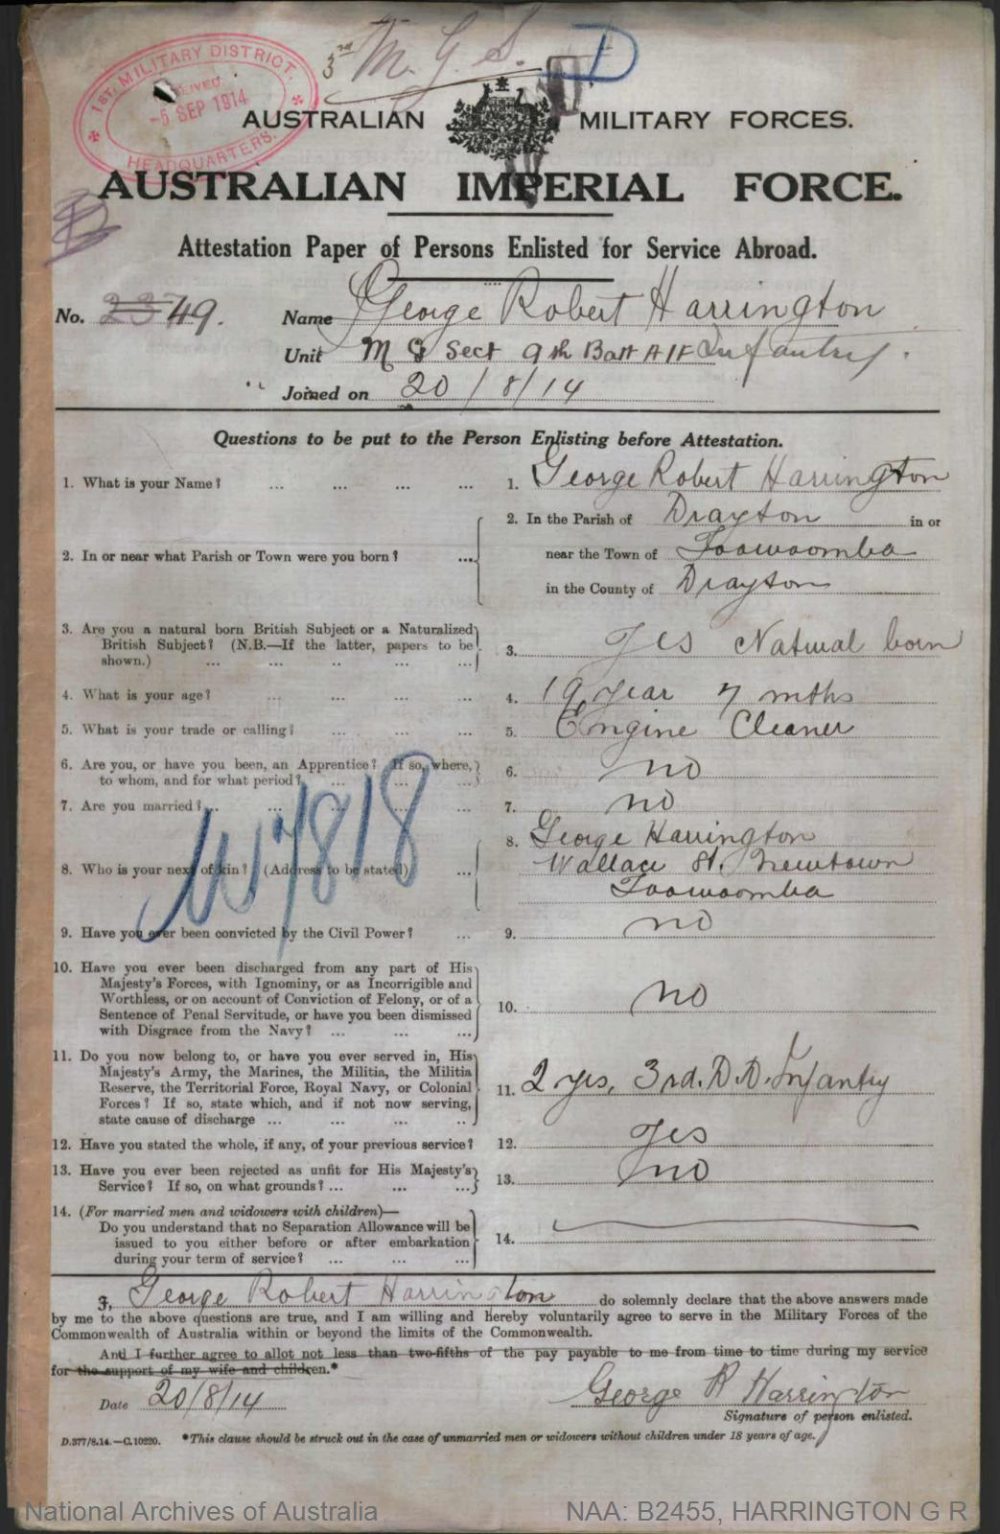 3rd M. G. S. D
1ST. MILITARY DISTRICT.
-5 SEP 1914
HEADQUARTERS.
AUSTRALIAN MILITARY FORCES.
AUSTRALIAN IMPERIAL FORCE.
Attestation Paper of Persons Enlisted for Service Abroad.
No. 49. Name George Robert Harrington
Unit M G Sect 9th Batt AIF Infantry.
Joined on 20/8/14
Questions to be put to the Person Enlisting before Attestation.
1. What is your Name? ... ... ... ... 1. George Robert Harrington
2. In or near what Parish or Town were you born? ... 2. In the Parish of Drayton in or
near the Town of Toowoomba
in the County of Drayton
3. Are you a natural born British Subject or a Naturalized
British Subject? (N.B.—If the latter, papers to be
shown.) ... ... .. ... ... 3. Yes Natural born
4. What is your age? ... ... ... 4. 19 year 7 mths
5. What is your trade or calling? ... ... ... 5. Engine Cleaner
6. Are you, or have you been, an Apprentice? If so, where,
to whom, and for what period? ... ... ... 6. no
7. Are you married? ... ... ... ... 7. no
8. Who is your next of kin? (Address to be stated) ... 8. George Harrington
Wallace St. Newtown
Toowoomba
W7818
9. Have you ever been convicted by the Civil Power? ... 9. no
10. Have you ever been discharged from any part of His
Majesty's Forces, with Ignominy, or as Incorrigible and
Worthless, or on account of Conviction of Felony, or of a
Sentence of Penal Servitude, or have you been dismissed
with Disgrace from the Navy? ... ... ... 10. no
11. Do you now belong to, or have you ever served in, His
Majesty's Army, the Marines, the Militia, the Militia
Reserve, the Territorial Force, Royal Navy, or Colonial
Forces? If so, state which, and if not now serving,
state cause of discharge ... ... ... .. 11. 2 yrs, 3rd. D.D. Infantry
12. Have you stated the whole, if any, of your previous service? 12. Yes
13. Have you ever been rejected as unfit for His Majesty's
Service? If so, on what grounds? ... ... ... 13. no
14. (For married men and widowers with children)—
Do you understand that no Separation Allowance will be
issued to you either before or after embarkation
during your term of service? ... ... ... 14.
I, George Robert Harrington do solemnly declare that the above answers made
by me to the above questions are true, and I am willing and hereby voluntarily agree to serve in the Military Forces of the
Commonwealth of Australia within or beyond the limits of the Commonwealth.
And I further agree to allot not less than two-fifths of the pay payable to me from time to time during my service
for the support of my wife and children.*
Date 20/8/14 George R Harrington
Signature of person enlisted.
D.377/8.14.—C.10220. *This clause should be struck out in the case of unmarried men or widowers without children under 18 years of age.
National Archives of Australia NAA: B2455, HARRINGTON G R